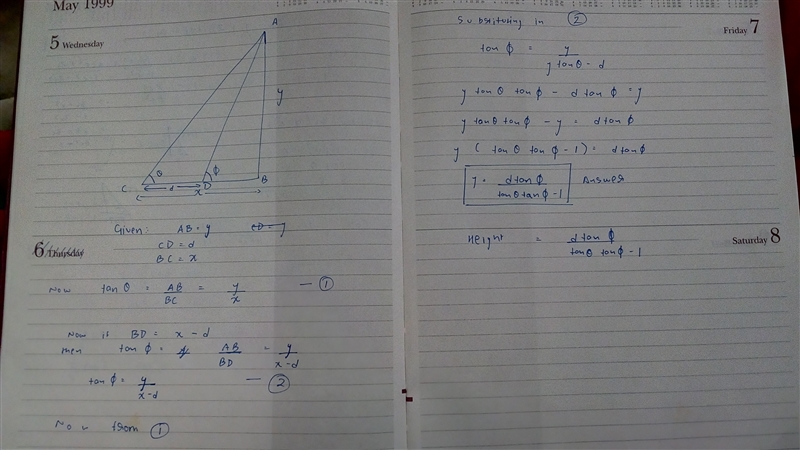 May 1999
5 Wednesday
A
y
θ
φ
C
d
D
B
x
Given: AB = y
CD = d
BC = x
6 Thursday
Now tan θ = AB/BC = y/x — ①
Now if BD = x - d
then tan φ = AB/BD = y/x-d
tan φ = y/x-d — ②
Now from ①
Friday 7
Substituting in ②
tan φ = y/y tan θ - d
y tan θ tan φ - d tan φ = y
y tan θ tan φ - y = d tan φ
y ( tan θ tan φ - 1) = d tan φ
y = d tan φ/tan θ tan φ - 1 Answer
Saturday 8
Height = d tan φ/tan θ tan φ - 1